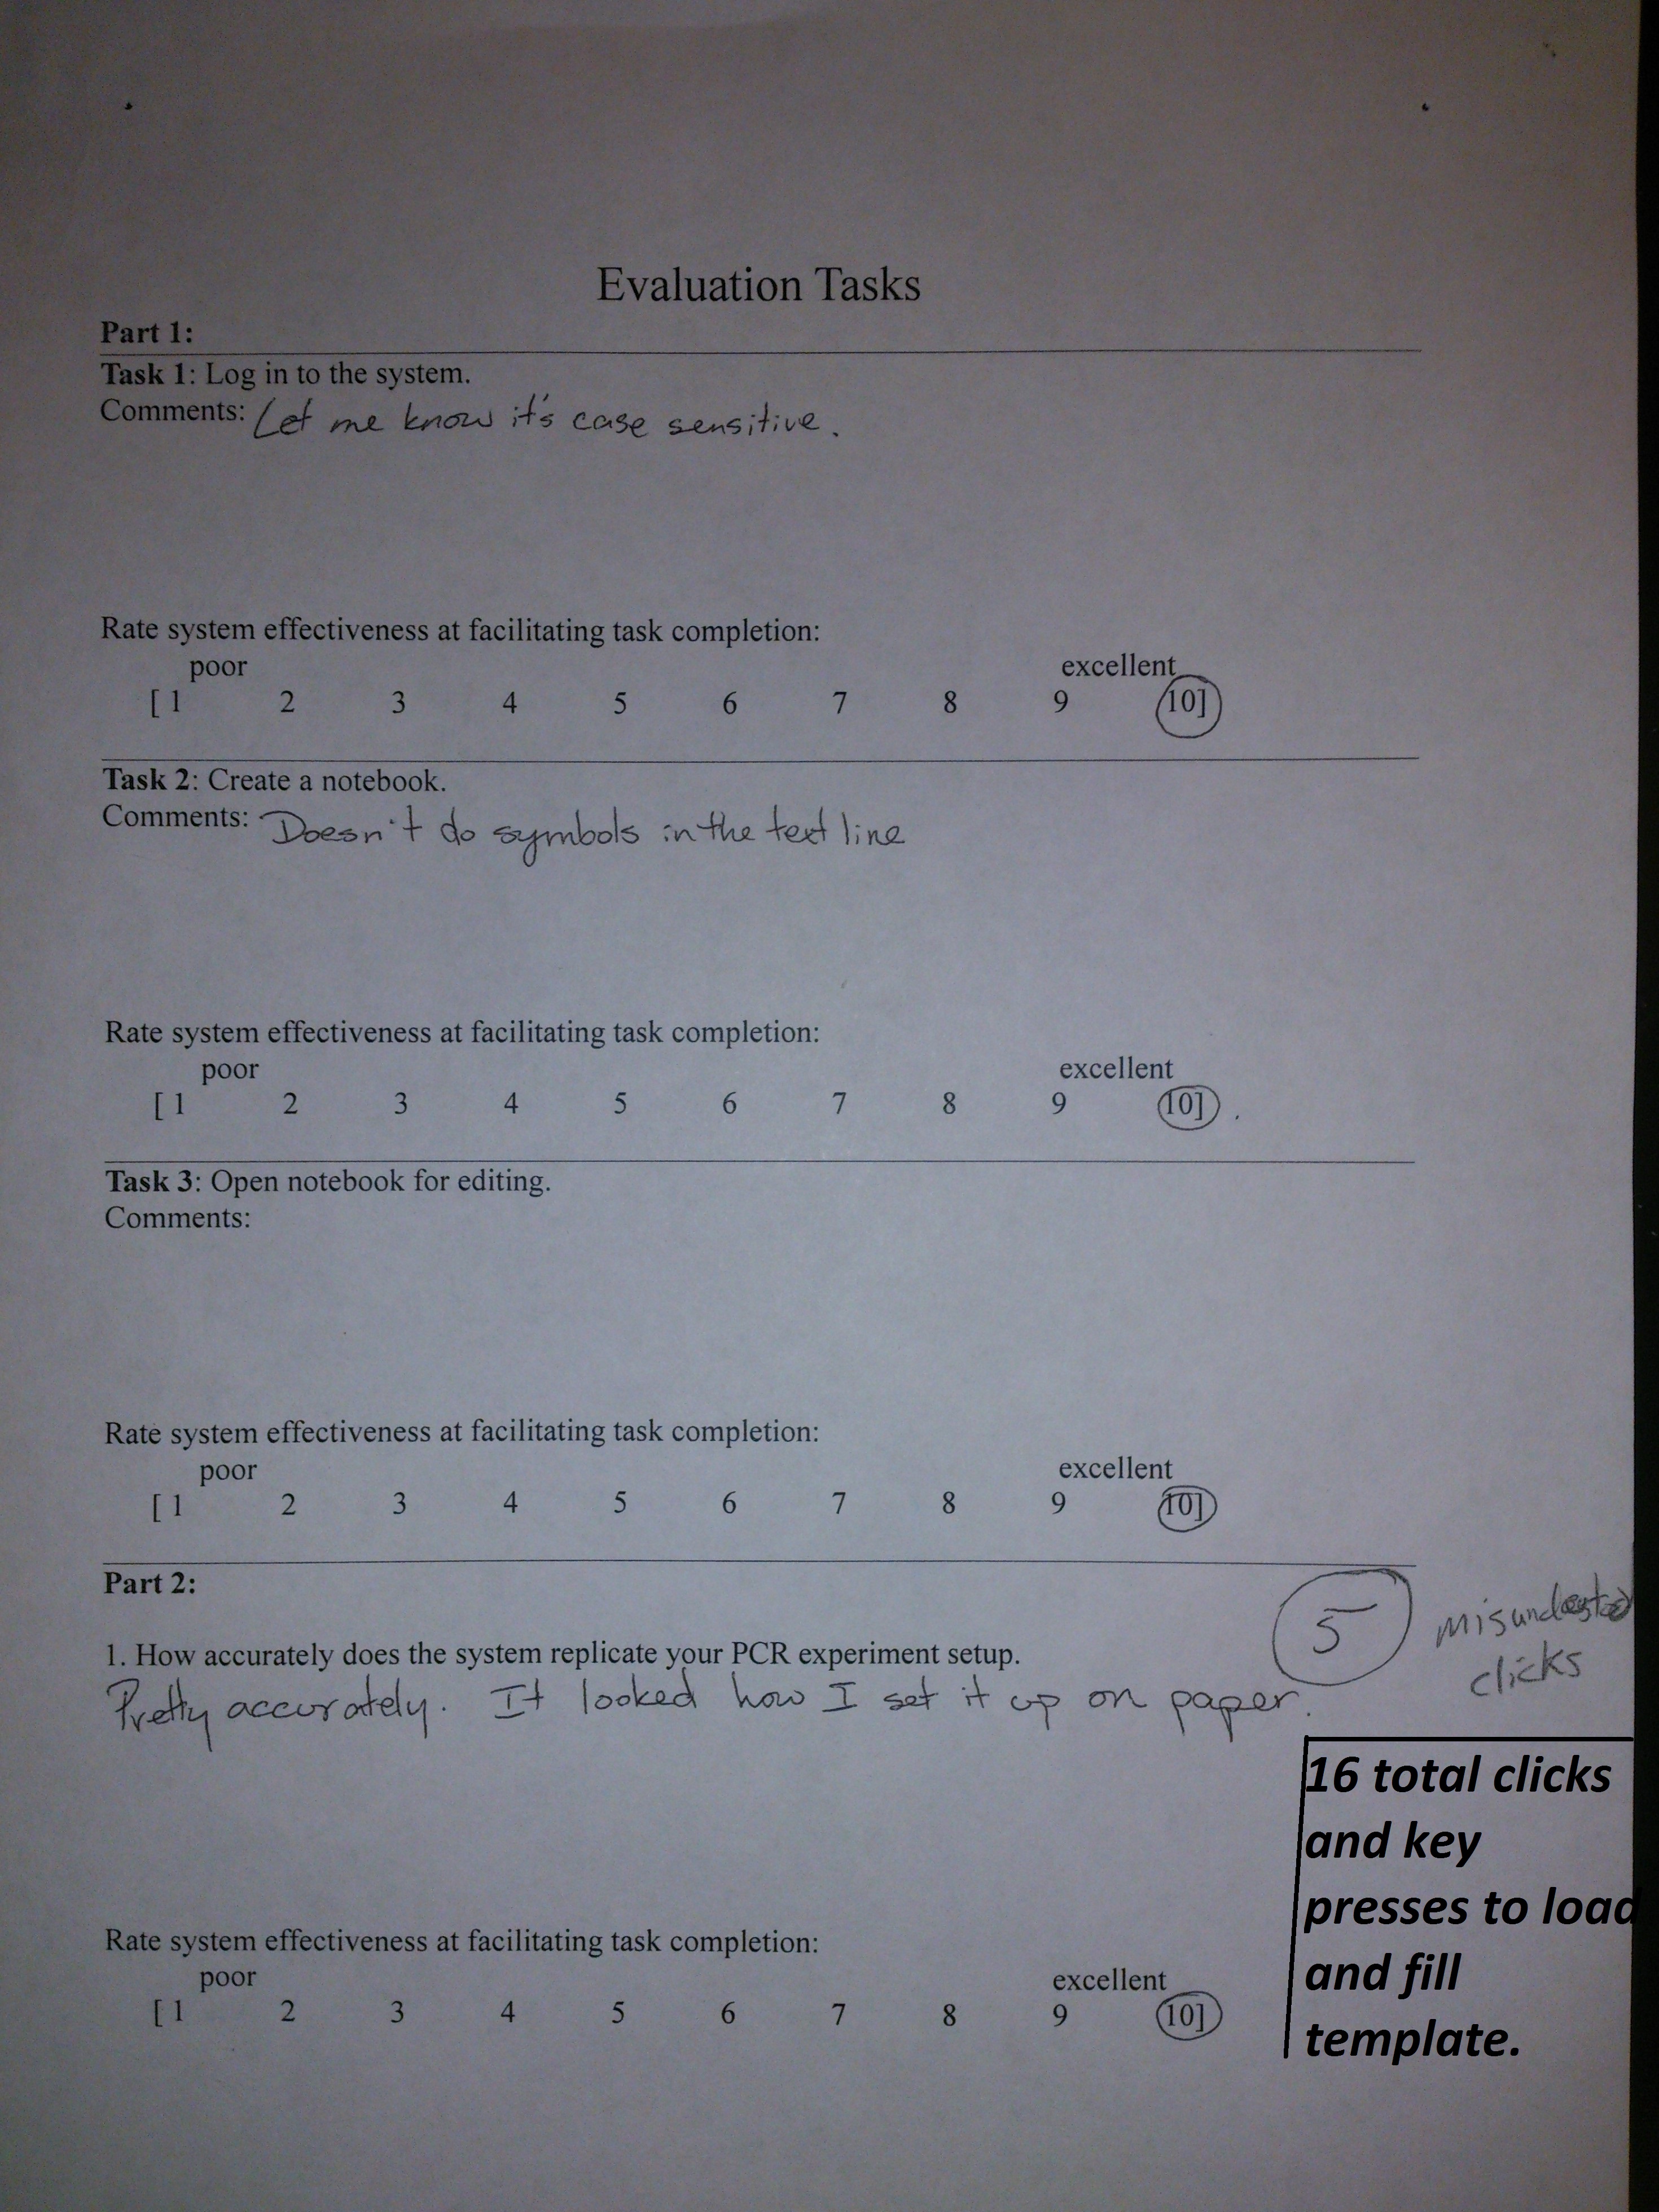 Evaluation Tasks
Part 1:
Task 1: Log in to the system.
Comments: Let me know it's case sensitive.
Rate system effectiveness at facilitating task completion:
poor excellent
[ 1 2 3 4 5 6 7 8 9 10]
Task 2: Create a notebook.
Comments: Doesn't do symbols in the text line
Rate system effectiveness at facilitating task completion:
poor excellent
[ 1 2 3 4 5 6 7 8 9 10]
Task 3: Open notebook for editing.
Comments:
Rate system effectiveness at facilitating task completion:
poor excellent
[ 1 2 3 4 5 6 7 8 9 10]
Part 2:
5
clicks
1. How accurately does the system replicate your PCR experiment setup.
Pretty accurately. It looked how I set it up on paper.
16 total clicks
and key
presses to load
and fill
template.
Rate system effectiveness at facilitating task completion:
poor excellent
[ 1 2 3 4 5 6 7 8 9 10]